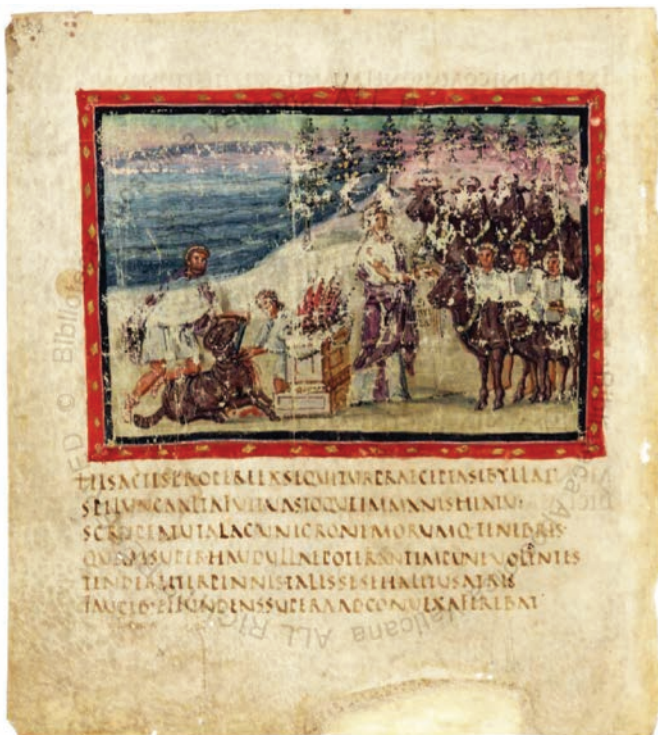 HISACTISPROPEREEXSEQUITURPRAECEPTASIBYLLAE
SPELUNCAALTAFUITUASTOQUEIMMANISHIATU·
SCRUPEATUTALACUNIGRONEMORUMQ·TENEBRIS·
QUAMSUPERHAUDULLAEPOTERANTIMPUNEUOLANTES
TENDEREITERPENNISTALISSESEHALITUSATRIS
FAUCIB·EFFUNDENSSUPERAADCONUEXAFEREBAT